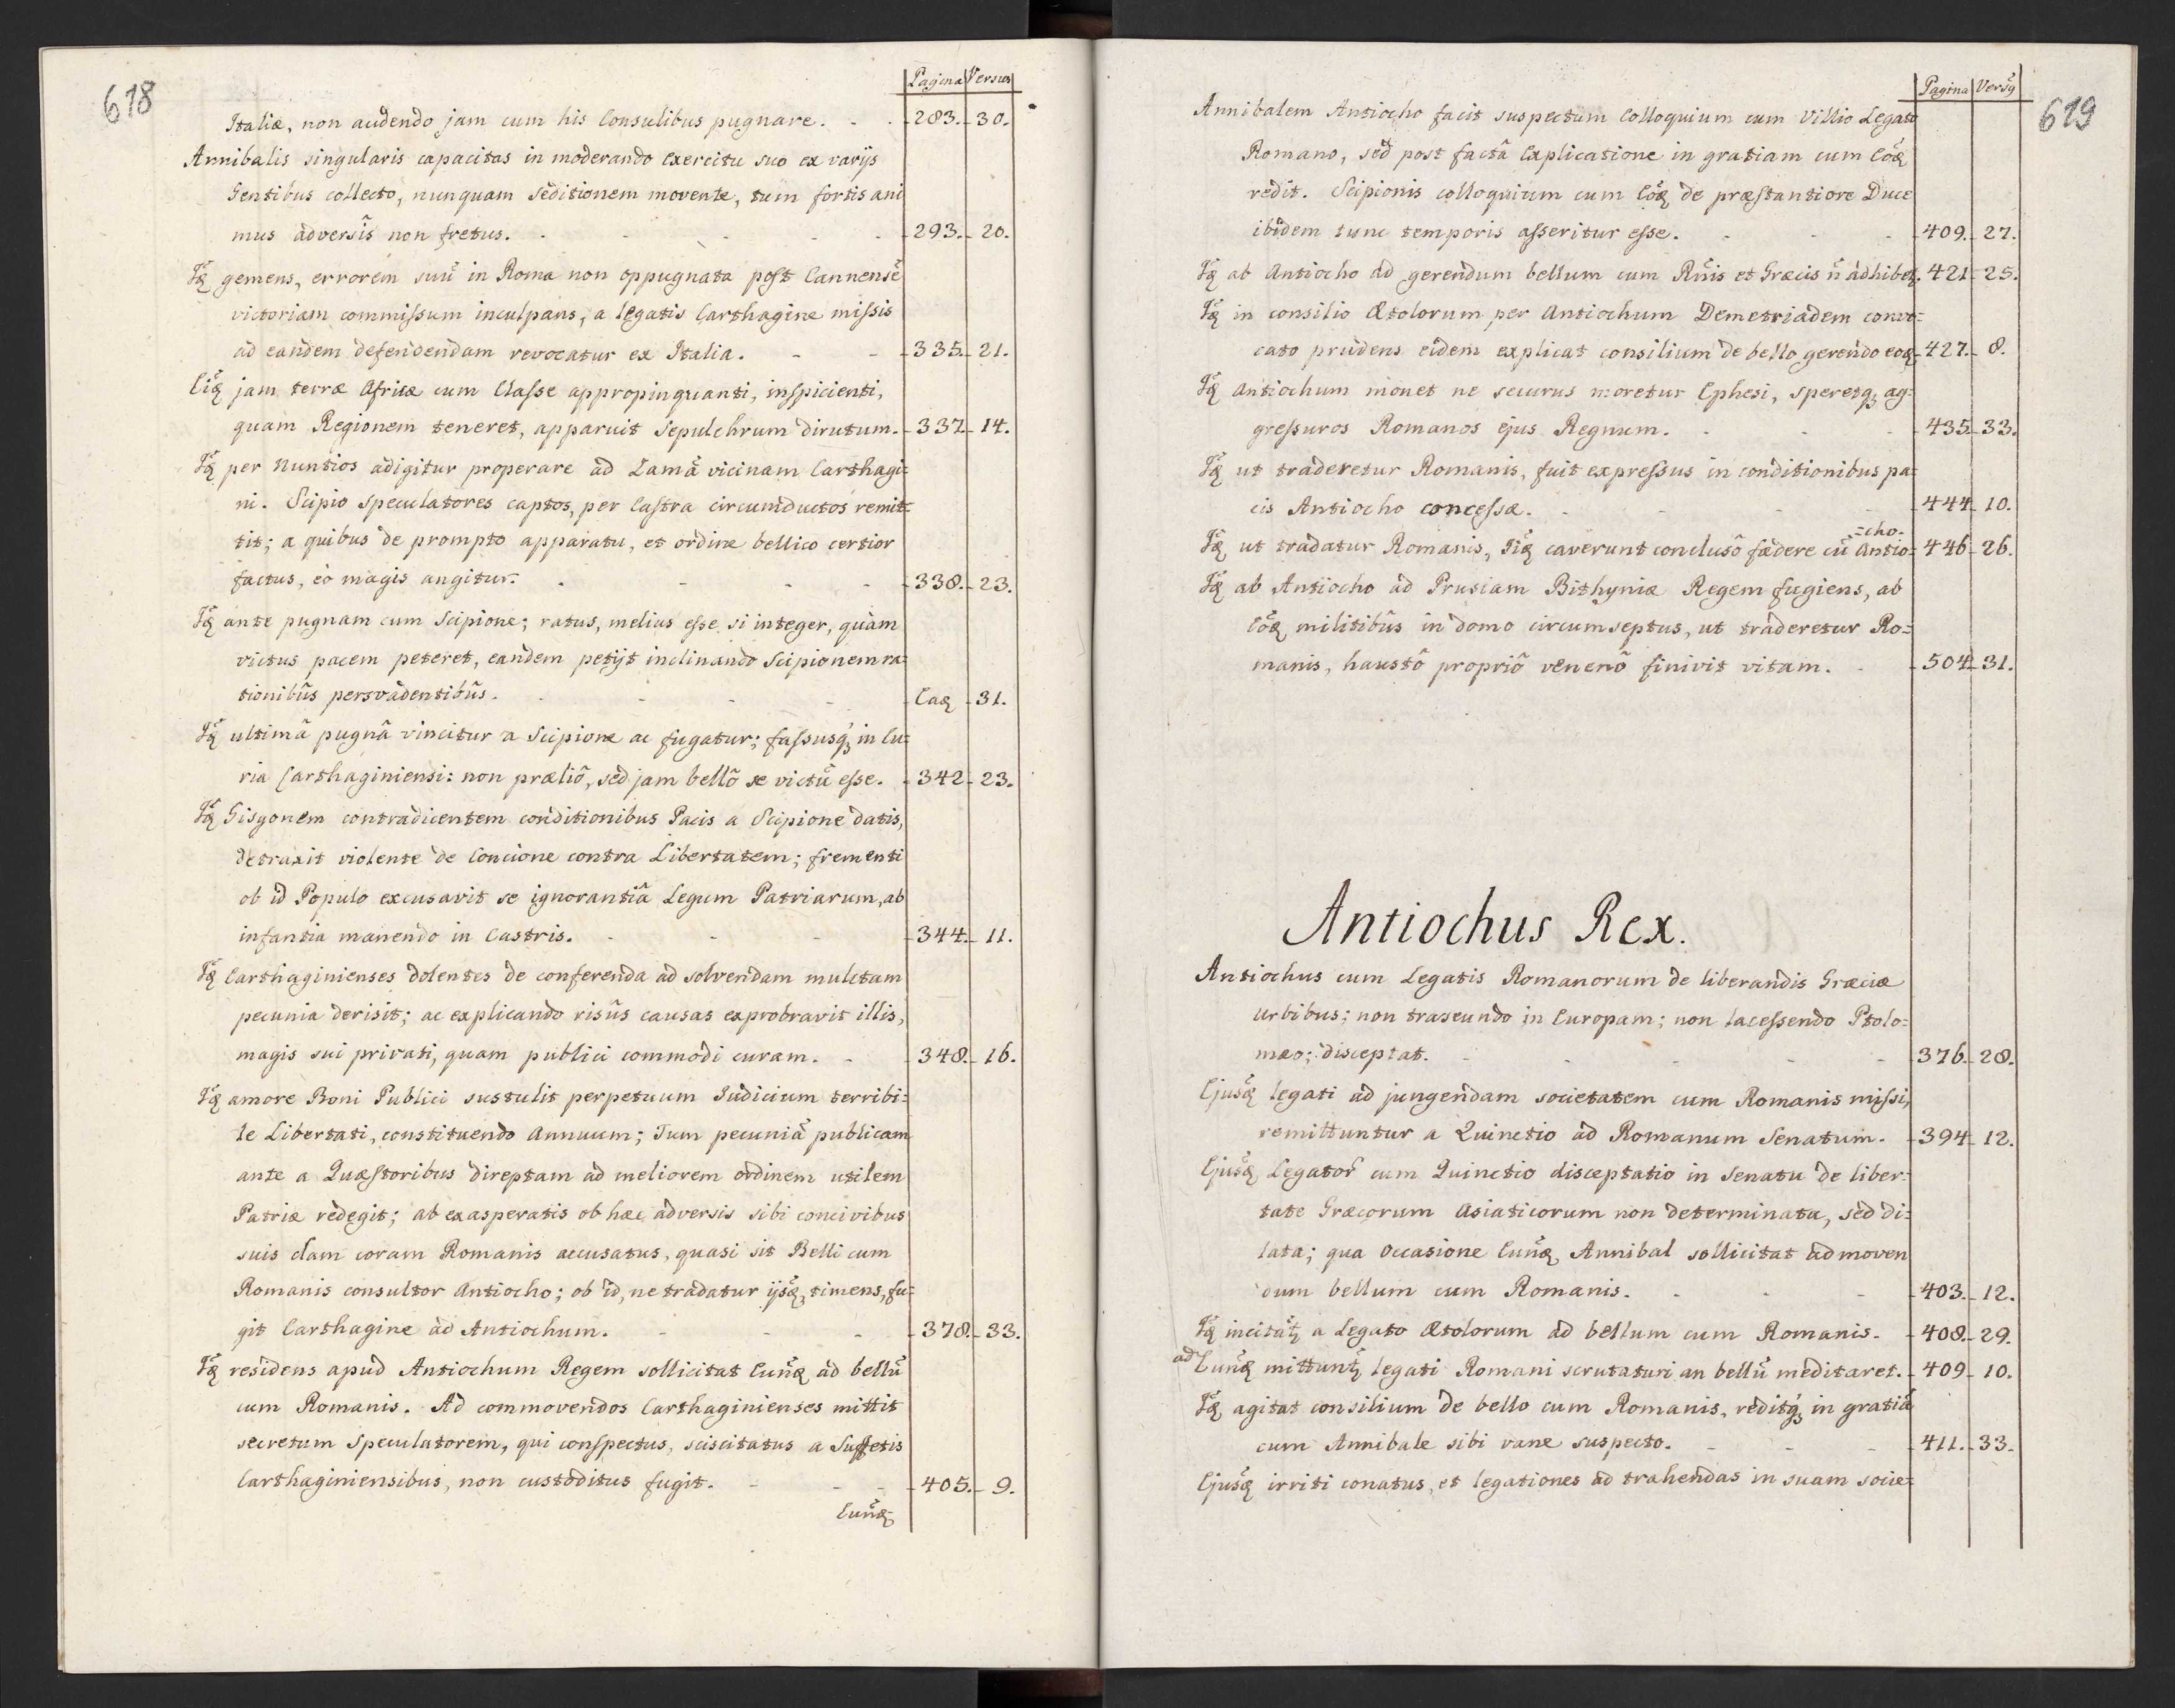 618
Pagina Versus
Italiæ, non audendo jam cum his Consulibus pugnare. 283. 30.
Annibalis singularis capacitas in moderando Exercitu suo ex varijs
Gentibus collecto, nunquam seditionem movente, tum fortis ani
mus adversis non fretus. 293. 20.
gemens, errorem suũ in Roma non oppugnata post Cannensẽ
victoriam commissum inculpans, a legatis Carthagine missis
ad eandem defendendam revocatur ex Italia. 335. 21.
jam terræ Africæ cum Classe appropinquanti, inspicienti,
quam Regionem teneret, apparuit Sepulchrum dirutum. 337. 14.
per Nuntios adigitur properare ad Zamã vicinam Carthagi=
ni. Scipio speculatores captos, per Castra circumductos remit=
tit; a quibus de prompto apparatu, et ordine bellico certior
factus, eò magis angitur. 338. 23.
ante pugnam cum Scipione; ratus, melius esse si integer, quàm
victus pacem peteret, eandem petijt inclinando Scipionem ra=
tionibûs persvadentibûs. 31.
ultimâ pugnâ vincitur a Scipione ac fugatur; fassusq; in Cu=
ria Carthaginiensi: non præliô, sed jam bellô se victũ esse. 342. 23.
Gisgonem contradicentem conditionibus Pacis a Scipione datis,
detraxit violente de Concione contra Libertatem; frementi
ob id Populo excusavit se ignorantiâ Legum Patriarum, ab
infantia manendo in Castris. 344. 11.
Carthaginienses dolentes de conferenda ad solvendam mulctam
pecunia derisit; ac explicando risûs causas exprobravit illis,
magis sui privati, quam publici commodi curam. 348. 16.
amore Boni Publici sustulit perpetuum Iudicium terribi=
le Libertati, constituendo Annuum; Tum pecuniã publicam
ante a Quæstoribus direptam ad meliorem ordinem utilem
Patriæ redegit; ab exasperatis ob hæc adversis sibi concivibus
suis clam coram Romanis accusatus, quasi sit Belli cum
Romanis consultor Antiocho; ob id, ne tradatur timens, fu=
git Carthagine ad Antiochum. 378. 33.
residens apud Antiochum Regem sollicitat ad bellũ
cum Romanis. Ad commovendos Carthaginienses mittit
secretum Speculatorem, qui conspectus, sciscitatus a Suffetis
Carthaginiensibus, non custoditus fugit. 405. 9.
619
Pagina Versq
Annibalem Antiocho facit suspectum Colloquium cum Villio Legato
Romano, sed post factã Explicatione in gratiam cum
redit. Scipionis colloquium cum de præstantiore Duce
ibidem tunc temporis asseritur esse. 409. 27.
ab Antiocho ad gerendum bellum cum Rñis et Græcis ñ adhibeŧ. 421. 25.
in consilio Ætolorum per Antiochum Demetriadem convo=
cato prudens eidem explicat consilium de bello gerendo 427. 8.
Antiochum monet ne securus moretur Ephesi, speretq; ag=
gressuros Romanos ejus Regnum. 435. 33.
ut traderetur Romanis, fuit expressus in conditionibus pa=
cis Antiocho concessæ. 444. 10.
ut tradatur Romanis, caverunt conclusô fædere cũ Antio= =cho. 446. 26.
ab Antiocho ad Prusiam Bithyniæ Regem fugiens, ab
militibûs in domo circumseptus, ut traderetur Ro=
manis, haustô propriô venenô finivit vitam. 504. 31.
Antiochus Rex.
Antiochus cum Legatis Romanorum de liberandis Græciæ
Urbibus; non traseundo in Europam; non lacessendo Ptolo=
mæo; disceptat. 376. 28.
legati ad jungendam societatem cum Romanis missi,
remittuntur a Quinctio ad Romanum Senatum. 394. 12.
Legator̃ cum Quinctio disceptatio in Senatu de liber=
tate Græcorum Asiaticorum non determinata, sed di=
lata; qua Occasione Annibal sollicitat ad moven
dum bellum cum Romanis. 403. 12.
a Legato Ætolorum ad bellum cum Romanis. 408. 29.
ad legati Romani scrutaturi an bellũ meditaret. 409. 10.
agitat consilium de bello cum Romanis, reditq; in gratiã
cum Annibale sibi vane suspecto. 411. 33.
irriti conatus, et legationes ad trahendas in suam socie=